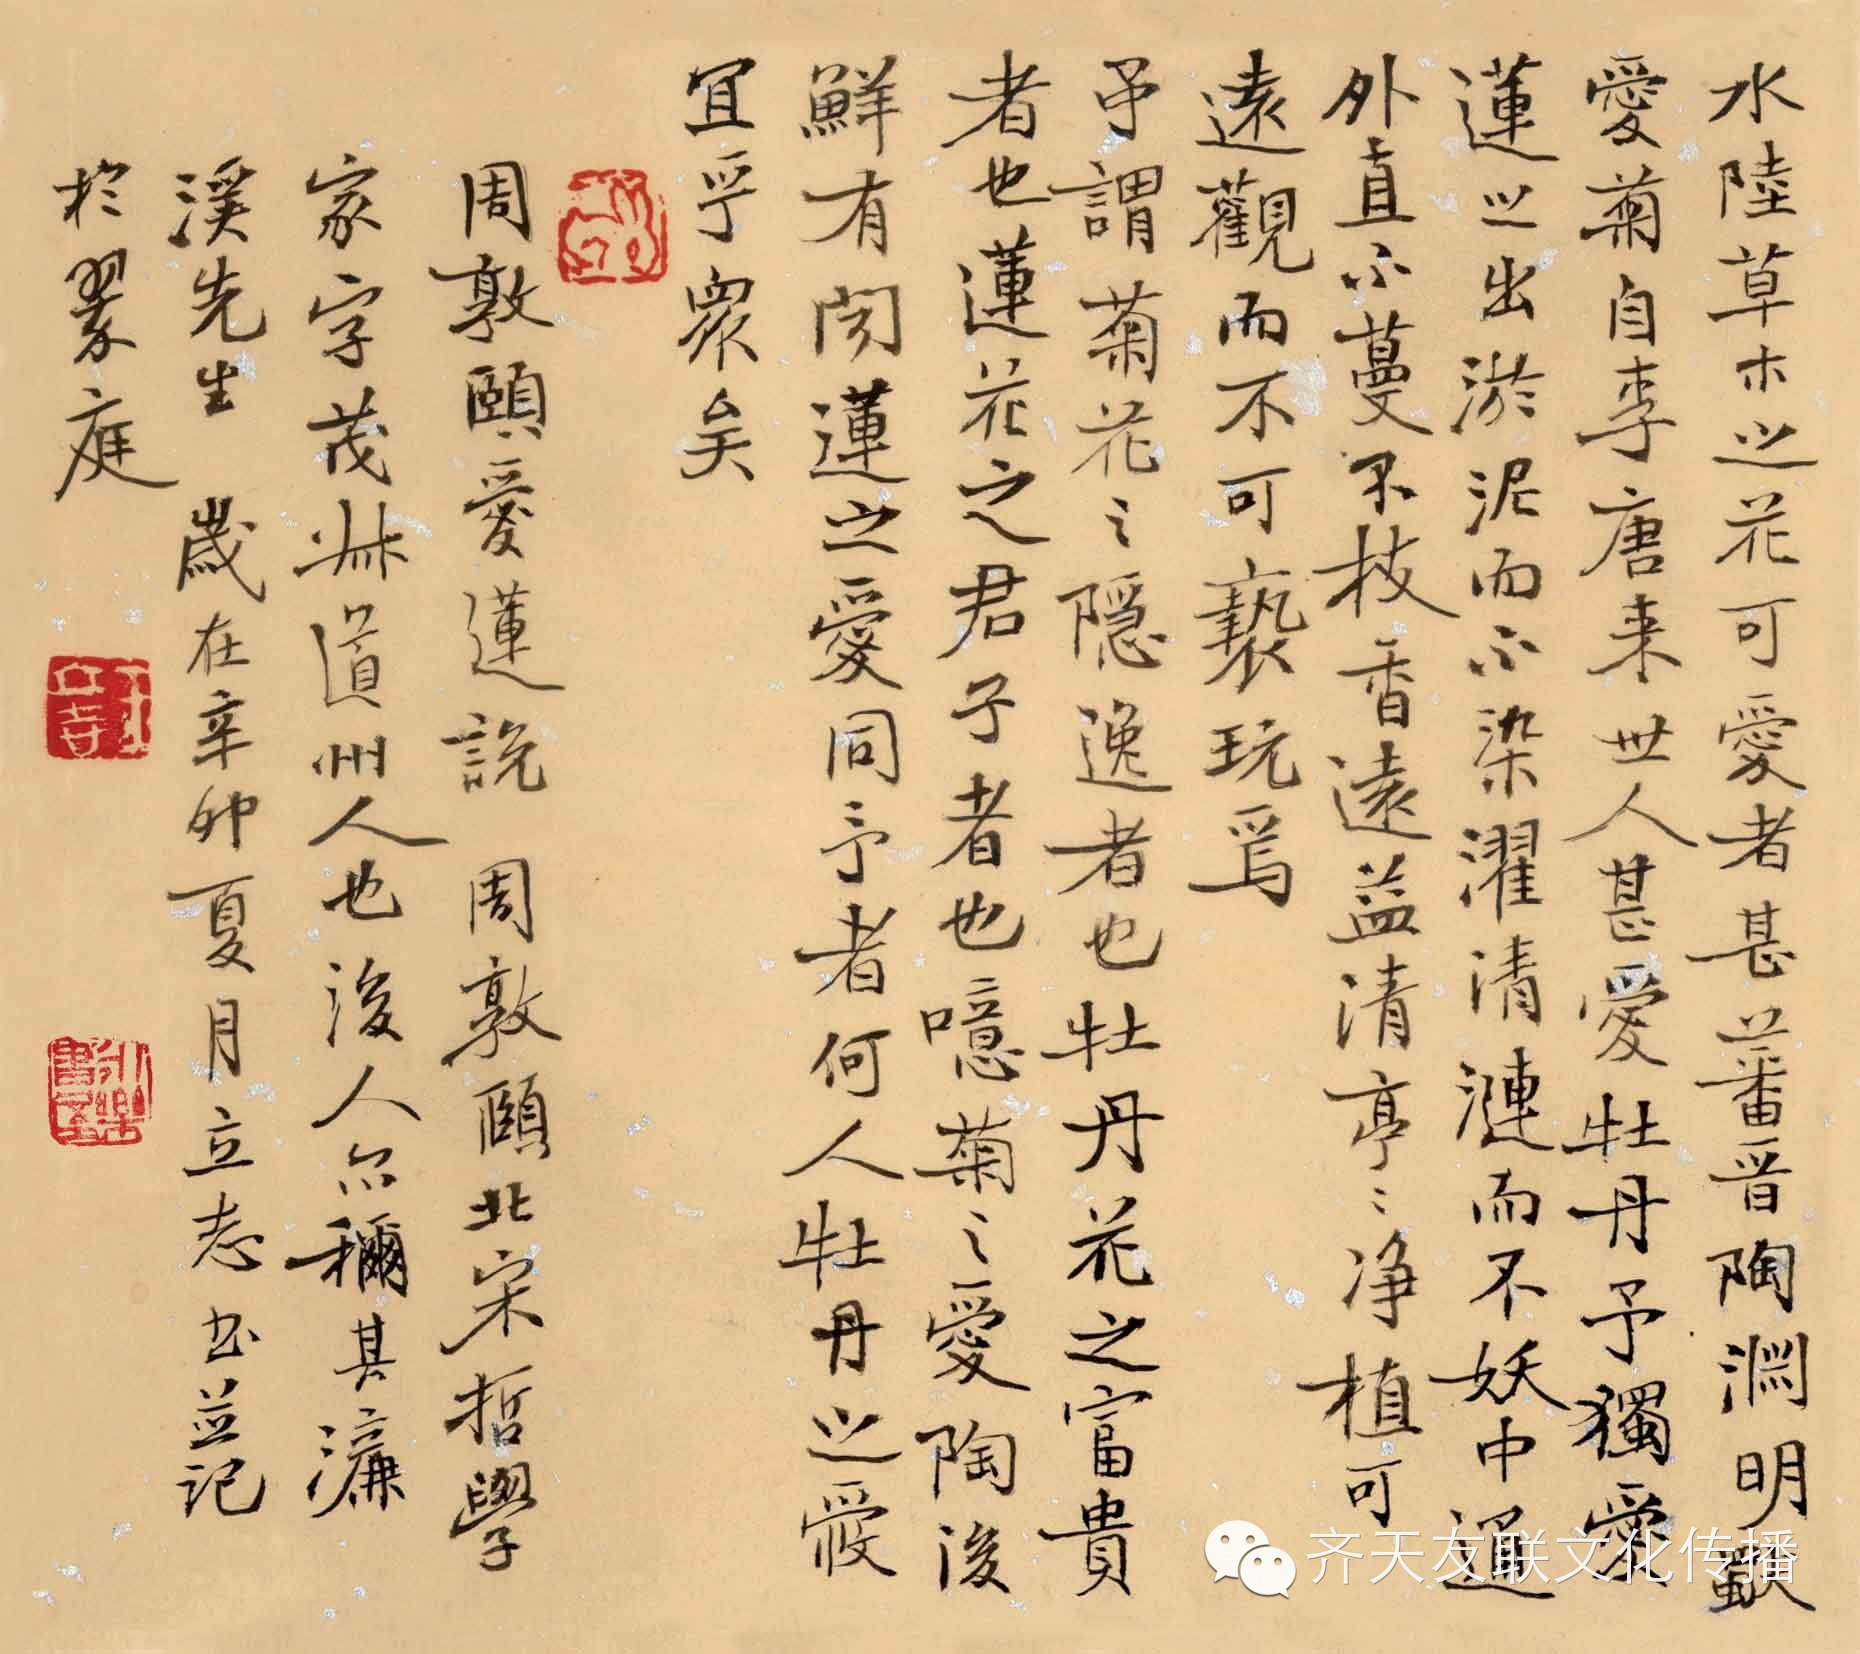 水陸草木之花可愛者甚蕃晋陶淵明獨
愛菊自李唐来世人甚愛牡丹予獨愛
蓮之出淤泥而不染濯清漣而不妖中通
外直不蔓不枝香遠益清亭〻净植可
遠觀而不可褻玩焉
予謂菊花之隠逸者也牡丹花之富貴
者也蓮花之君子者也噫菊之愛陶後
鮮有聞蓮之愛同予者何人牡丹之愛
宜乎衆矣
周敦頤愛蓮説 周敦頤北宋哲學
家字茂叔道州人也後人尒稱其濂
溪先生 歲在辛卯夏月立志书並記
於翠庭
齐天友联文化传播